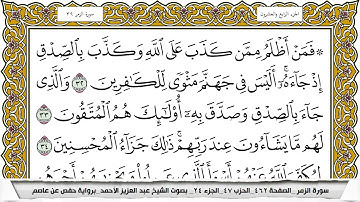 سورة الزمر ٣٩
الجزء الرابع والعشرون
۞ فَمَنْ أَظْلَمُ مِمَّن كَذَبَ عَلَى ٱللَّهِ وَكَذَّبَ بِٱلصِّدْقِ
إِذْ جَآءَهُۥٓ أَلَيْسَ فِى جَهَنَّمَ مَثْوًى لِّلْكَٰفِرِينَ ٣٢ وَٱلَّذِى
جَآءَ بِٱلصِّدْقِ وَصَدَّقَ بِهِۦٓ أُو۟لَٰٓئِكَ هُمُ ٱلْمُتَّقُونَ ٣٣
لَهُم مَّا يَشَآءُونَ عِندَ رَبِّهِمْ ذَٰلِكَ جَزَآءُ ٱلْمُحْسِنِينَ ٣٤
سورة الزمر_ الصفحة ٤٦٢_ الحزب ٤٧_ الجزء ٢٤ _ بصوت الشيخ عبد العزيز الأحمد_ برواية حفص عن عاصم